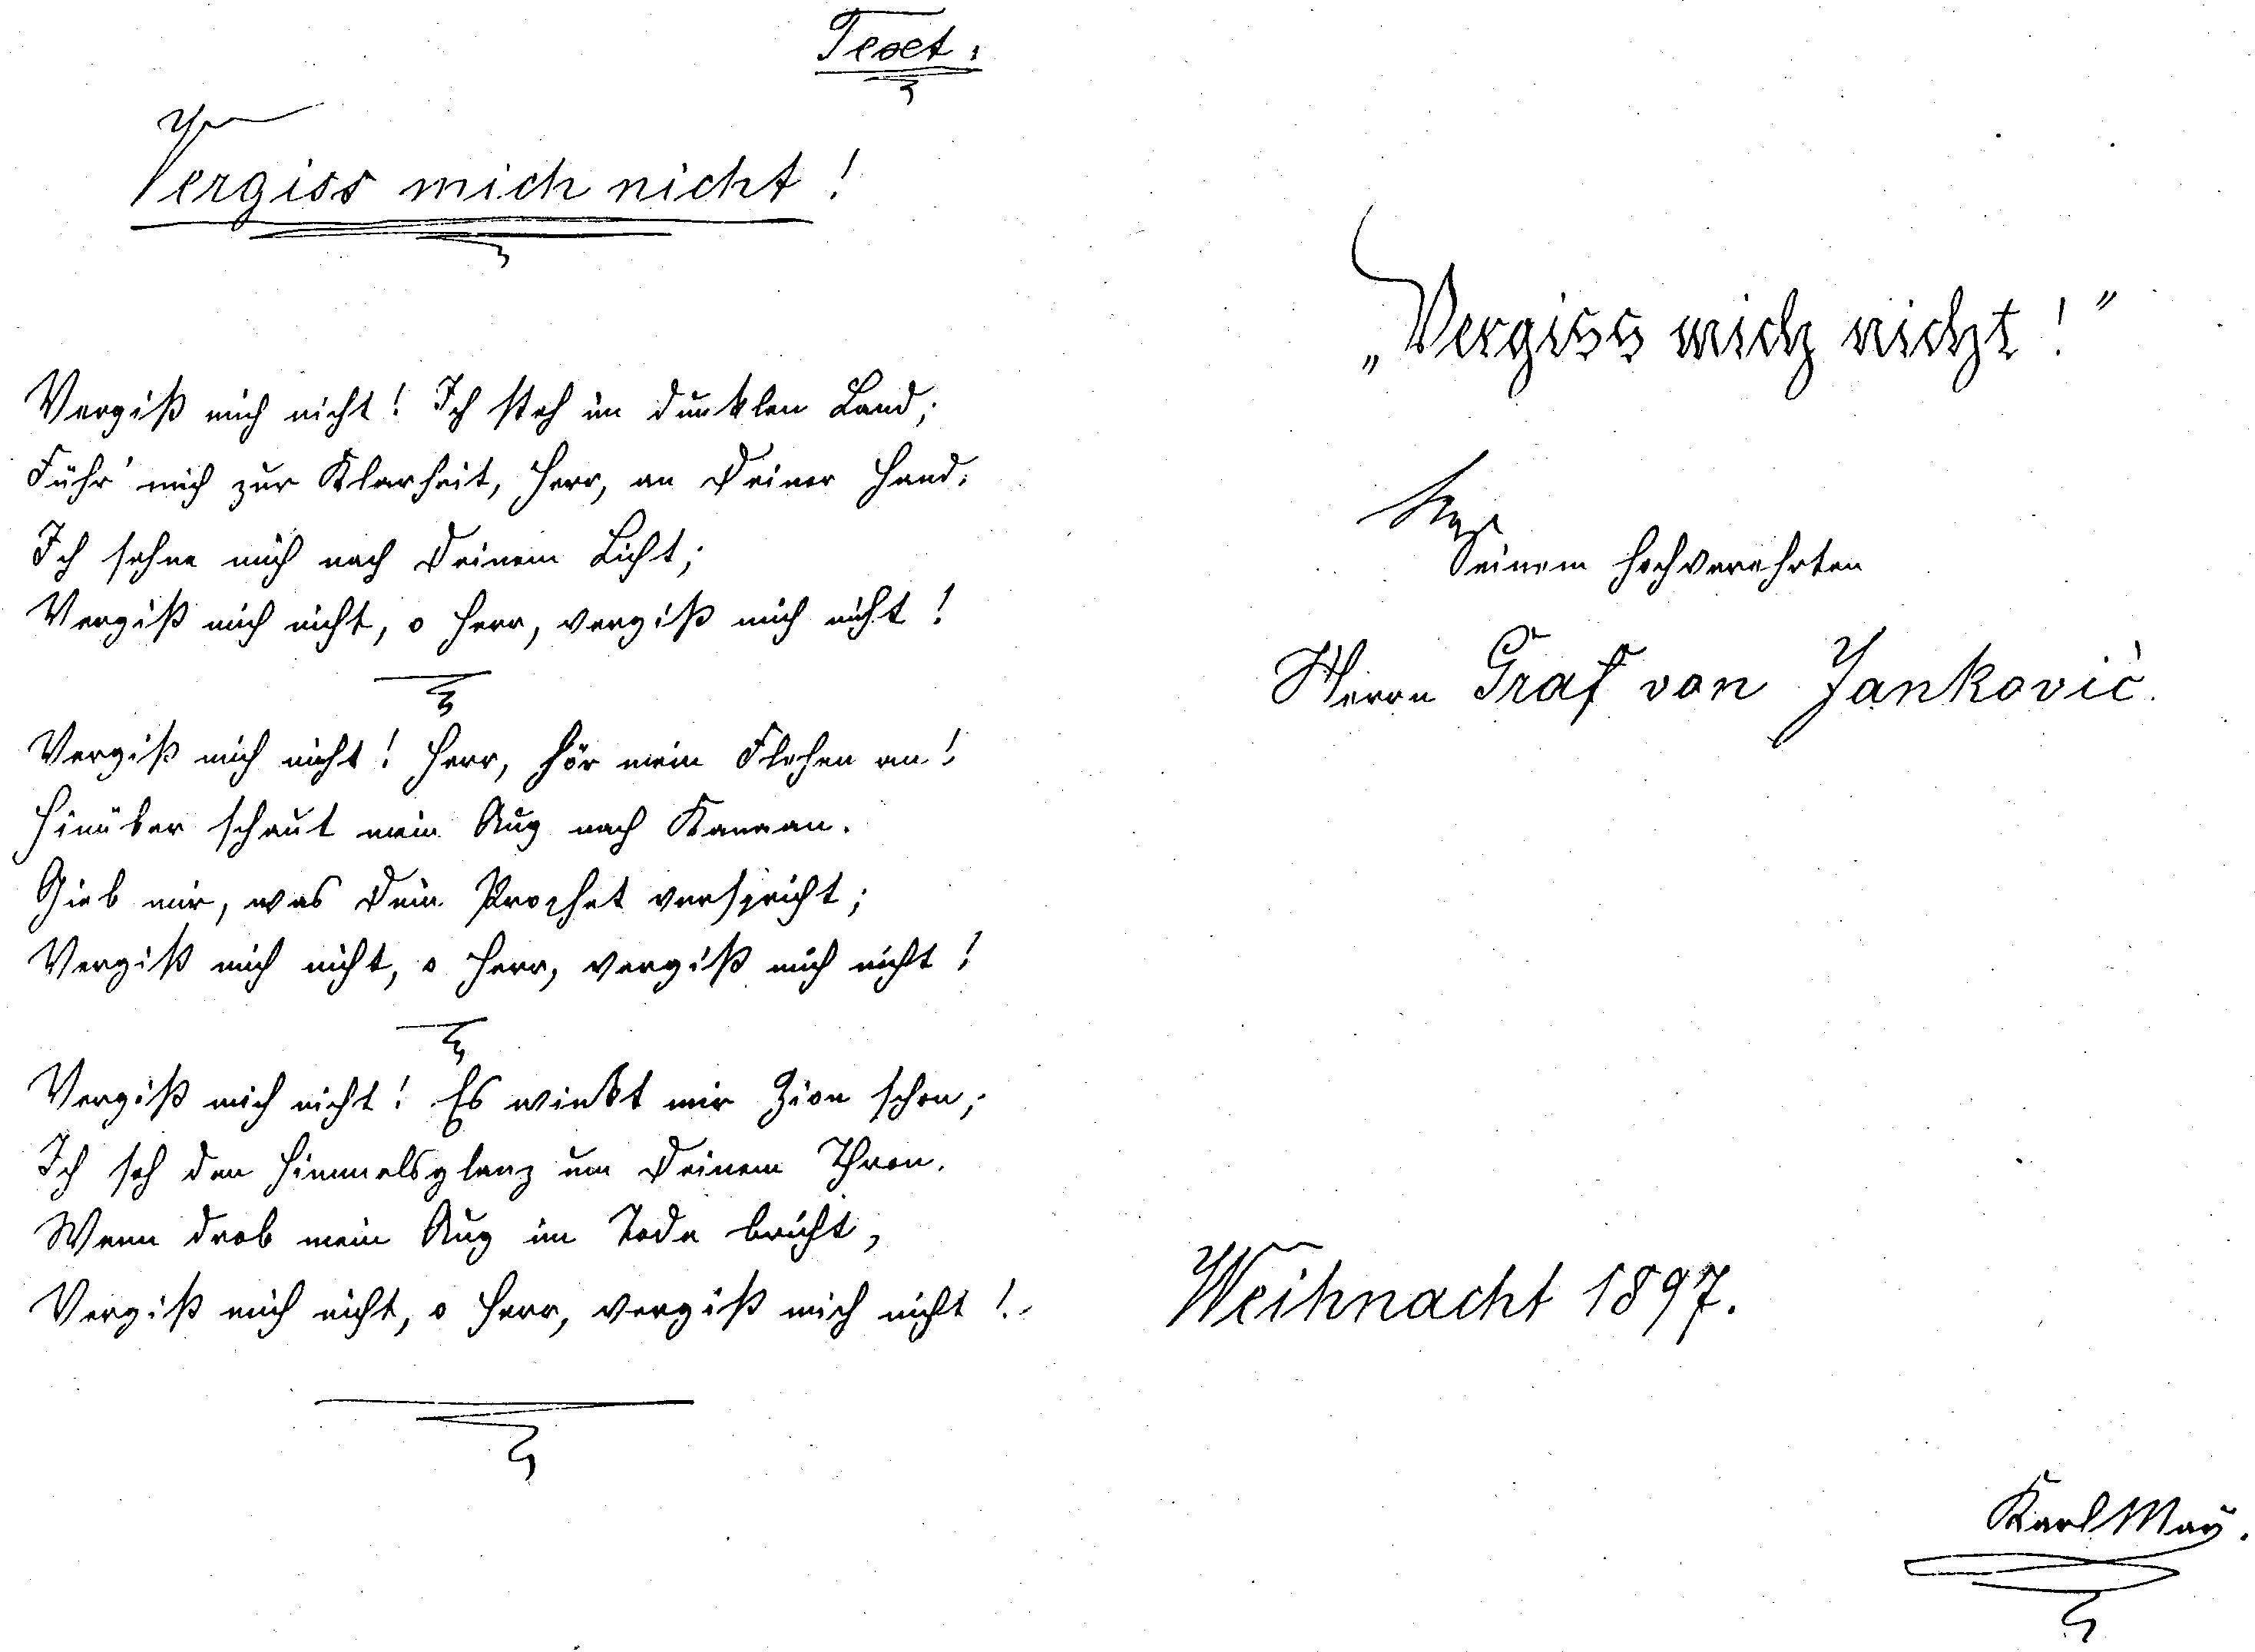 Text.
Vergiss mich nicht!
Vergiß mich nicht! Ich steh im dunklen Land;
Führ' mich zur Klarheit, Herr, an Deiner Hand;
Ich sehne mich nach Deinem Licht;
Vergiß mich nicht, o Herr, vergiß mich nicht!
Vergiß mich nicht! Herr, hör mein Flehen an!
Hinüber schaut mein Aug nach Kanaan.
Gieb mir, was Dein Prophet verspricht;
Vergiß mich nicht, o Herr, vergiß mich nicht!
Vergiß mich nicht! Es winkt mir Zion schon;
Ich seh den Himmelsglanz um Deinem Thron.
Wenn drob mein Aug im Tode bricht,
Vergiß mich nicht, o Herr, vergiß mich nicht!
„Vergiss mich nicht!"
Seinem hochverehrten
Herrn Graf von Janković.
Weihnacht 1897.
Karl May.